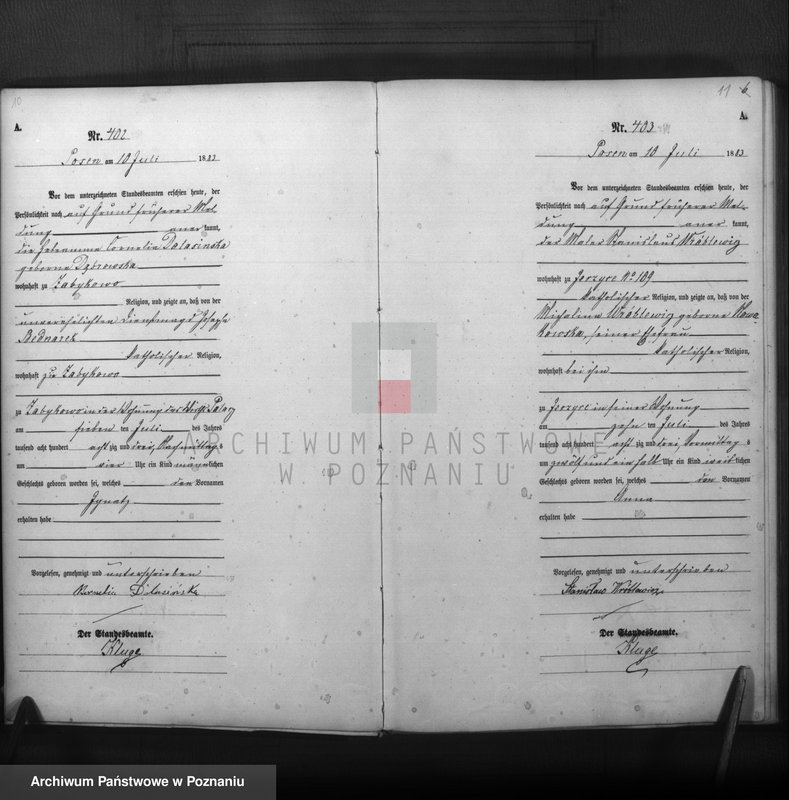 10
A.
Nr. 402
Posen am 10 Juli 1883
Vor dem unterzeichneten Standesbeamten erschien heute, der
Persönlichkeit nach auf Grund früherer Mel-
dung aner kannt,
die Hebeamme Cornelia Dalasinska
geborne Dąbrowska
wohnhaft zu Zabykowo
Religion, und zeigte an, daß von der
unverehelichten Dienstmagd Josepha
Bednarek
katholischer Religion,
wohnhaft zu Zabykowo
zu Zabykowo in der Wohnung des
am sieben ten Juli des Jahres
tausend acht hundert acht zig und drei, Nachmittags
um vier Uhr ein Kind männlichen
Geschlechts geboren worden sei, welches den Vornamen
Ignatz
erhalten habe
Vorgelesen, genehmigt und unterschrieben
Kornelia Dalasińska
Der Standesbeamte.
Kluge
11 6
A.
Nr. 403
Posen am 10 Juli 1883
Vor dem unterzeichneten Standesbeamten erschien heute, der
Persönlichkeit nach auf Grund früherer Mel-
dung aner kannt,
der Maler Stanislaus Wróblewicz
wohnhaft zu Jerzyce No 109
katholischer Religion, und zeigte an, daß von der
Michalina Wróblewicz geborne Nowa-
kowska, seiner Ehefrau
katholischer Religion,
wohnhaft bei ihm
zu Jerzyce in seiner Wohnung
am zehn ten Juli des Jahres
tausend acht hundert acht zig und drei, Vormittag s
um zwölf und ein halb Uhr ein Kind weiblichen
Geschlechts geboren worden sei, welches den Vornamen
Anna
erhalten habe
Vorgelesen, genehmigt und unterschrieben
Stanisław Wróblewicz
Der Standesbeamte.
Kluge
ARCHIWUM PAŃSTWOWE
W POZNANIU
Archiwum Państwowe w Poznaniu